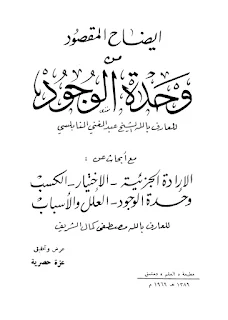 ايضاح المقصود
من
وحدة الوجود
للعارف بالله الشيخ عبد الغني النابلسي
مع أبحاث عن :
الإرادة الجزئية - الاختيار - الكسب
وحدة الوجود - العلل والأسباب
للعارف بالله مصطفى كمال الشريف
عرض وتحقيق
عزة حصرية
مطبعة العلم دمشق
١٣٨٩ هـ ١٩٦٩ م